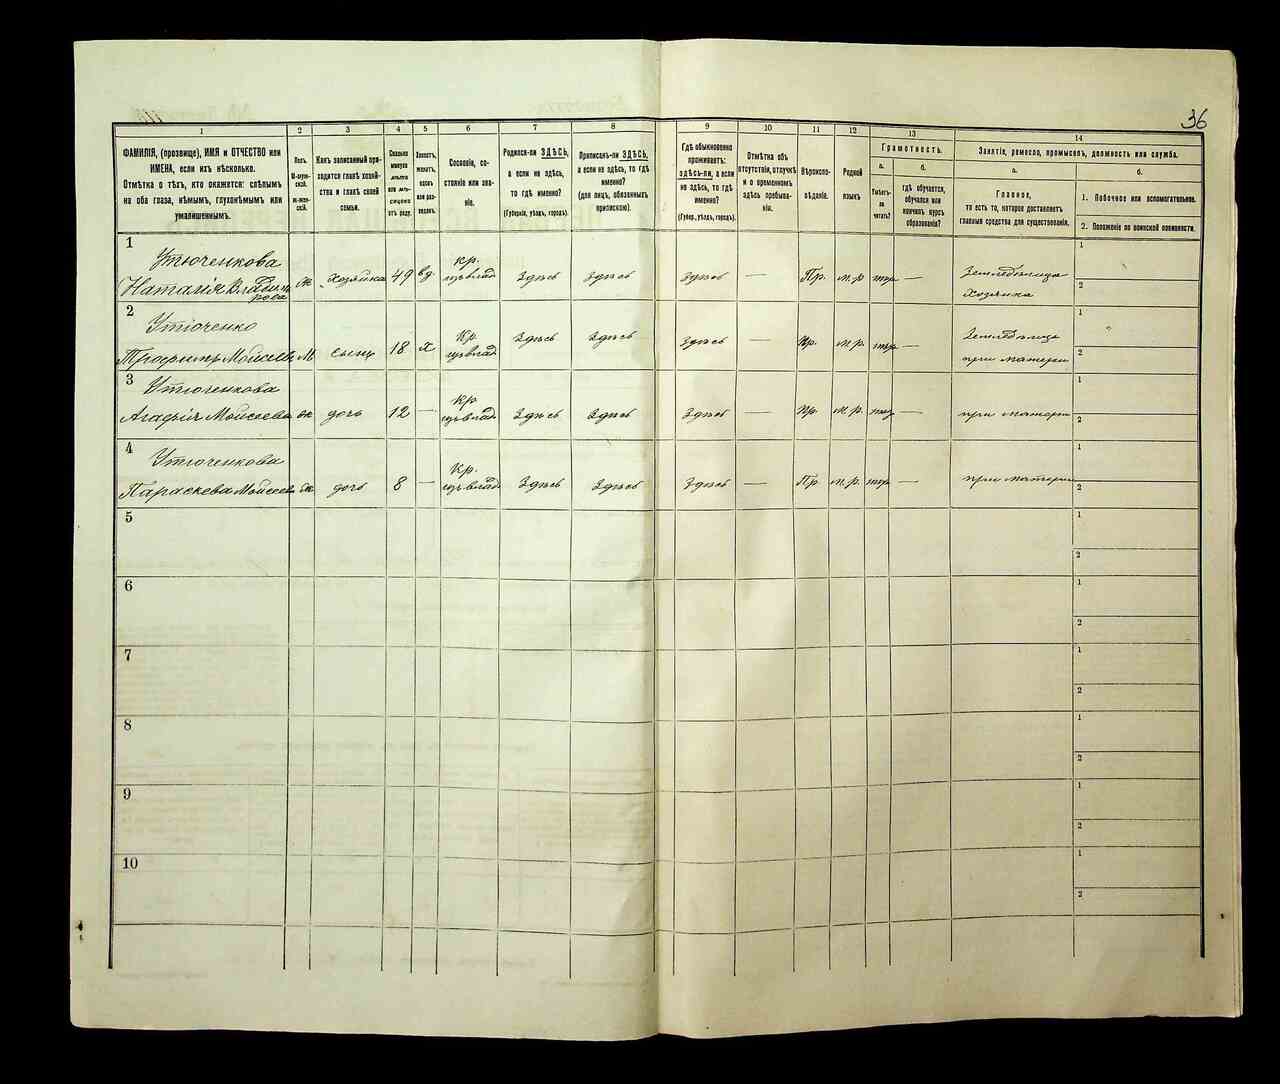 36
1
2
3
4
5
6
7
8
9
10
11
12
13
14
ФАМИЛІЯ, (прозвище), ИМЯ и ОТЧЕСТВО или
ИМЕНА, если ихъ нѣсколько.
Отмѣтка о тѣхъ, кто окажется: слѣпымъ
на оба глаза, нѣмымъ, глухонѣмымъ или
умалишеннымъ.
Полъ.
М-муж-
ской.
ж-жен-
скій.
Какъ записанный при-
ходится главѣ хозяй-
ства и главѣ своей
семьи.
Сколько
минуло
лѣтъ
или мѣ-
сяцевъ
отъ роду.
Холостъ,
женатъ,
вдовъ
или раз-
веденъ.
Сословіе, со-
стояніе или зва-
ніе.
Родился-ли ЗДѢСЬ,
а если не здѣсь,
то гдѣ именно?
(Губернія, уѣздъ, городъ).
Приписанъ-ли ЗДѢСЬ,
а если не здѣсь, то гдѣ
именно?
(для лицъ, обязанныхъ
припискою).
Гдѣ обыкновенно
проживаетъ:
здѣсь-ли, а если
не здѣсь, то гдѣ
именно?
(Губер., уѣздъ, городъ).
Отмѣтка объ
отсутствіи, отлучкѣ
и о временномъ
здѣсь пребыва-
ніи.
Вѣроиспо-
вѣданіе.
Родной
языкъ
Грамотность.
а.
Умѣетъ-
ли
читать?
б.
гдѣ обучается,
обучался или
кончилъ курсъ
образованія?
Занятія, ремесло, промыселъ, должность или служба.
а.
Главное,
то есть то, которое доставляетъ
главныя средства для существованія.
б.
1. Побочное или вспомогательное.
2. Положеніе по воинской повинности.
1
Утюченкова
Наталія
ж хозяйка 49 вд
кр.
Здѣсь Здѣсь Здѣсь — Пр. м.р. —
Земледѣлица
Хозяйка
1
2
2
Утюченко
Трофимъ Моисеевъ
М сынъ 18 х
Кр
Здѣсь Здѣсь Здѣсь — Пр. м.р. —
при матери
1
2
3
Утюченкова
Агафія Моисеева
ж дочь 12 —
Кр
Здѣсь Здѣсь Здѣсь — Пр. м.р. —
при матери
1
2
4
Утюченкова
Параскева Моисеева
ж дочь 8 —
Кр.
Здѣсь Здѣсь Здѣсь — Пр. м.р. —
при матери
1
2
5
1
2
6
1
2
7
1
2
8
1
2
9
1
2
10
1
2